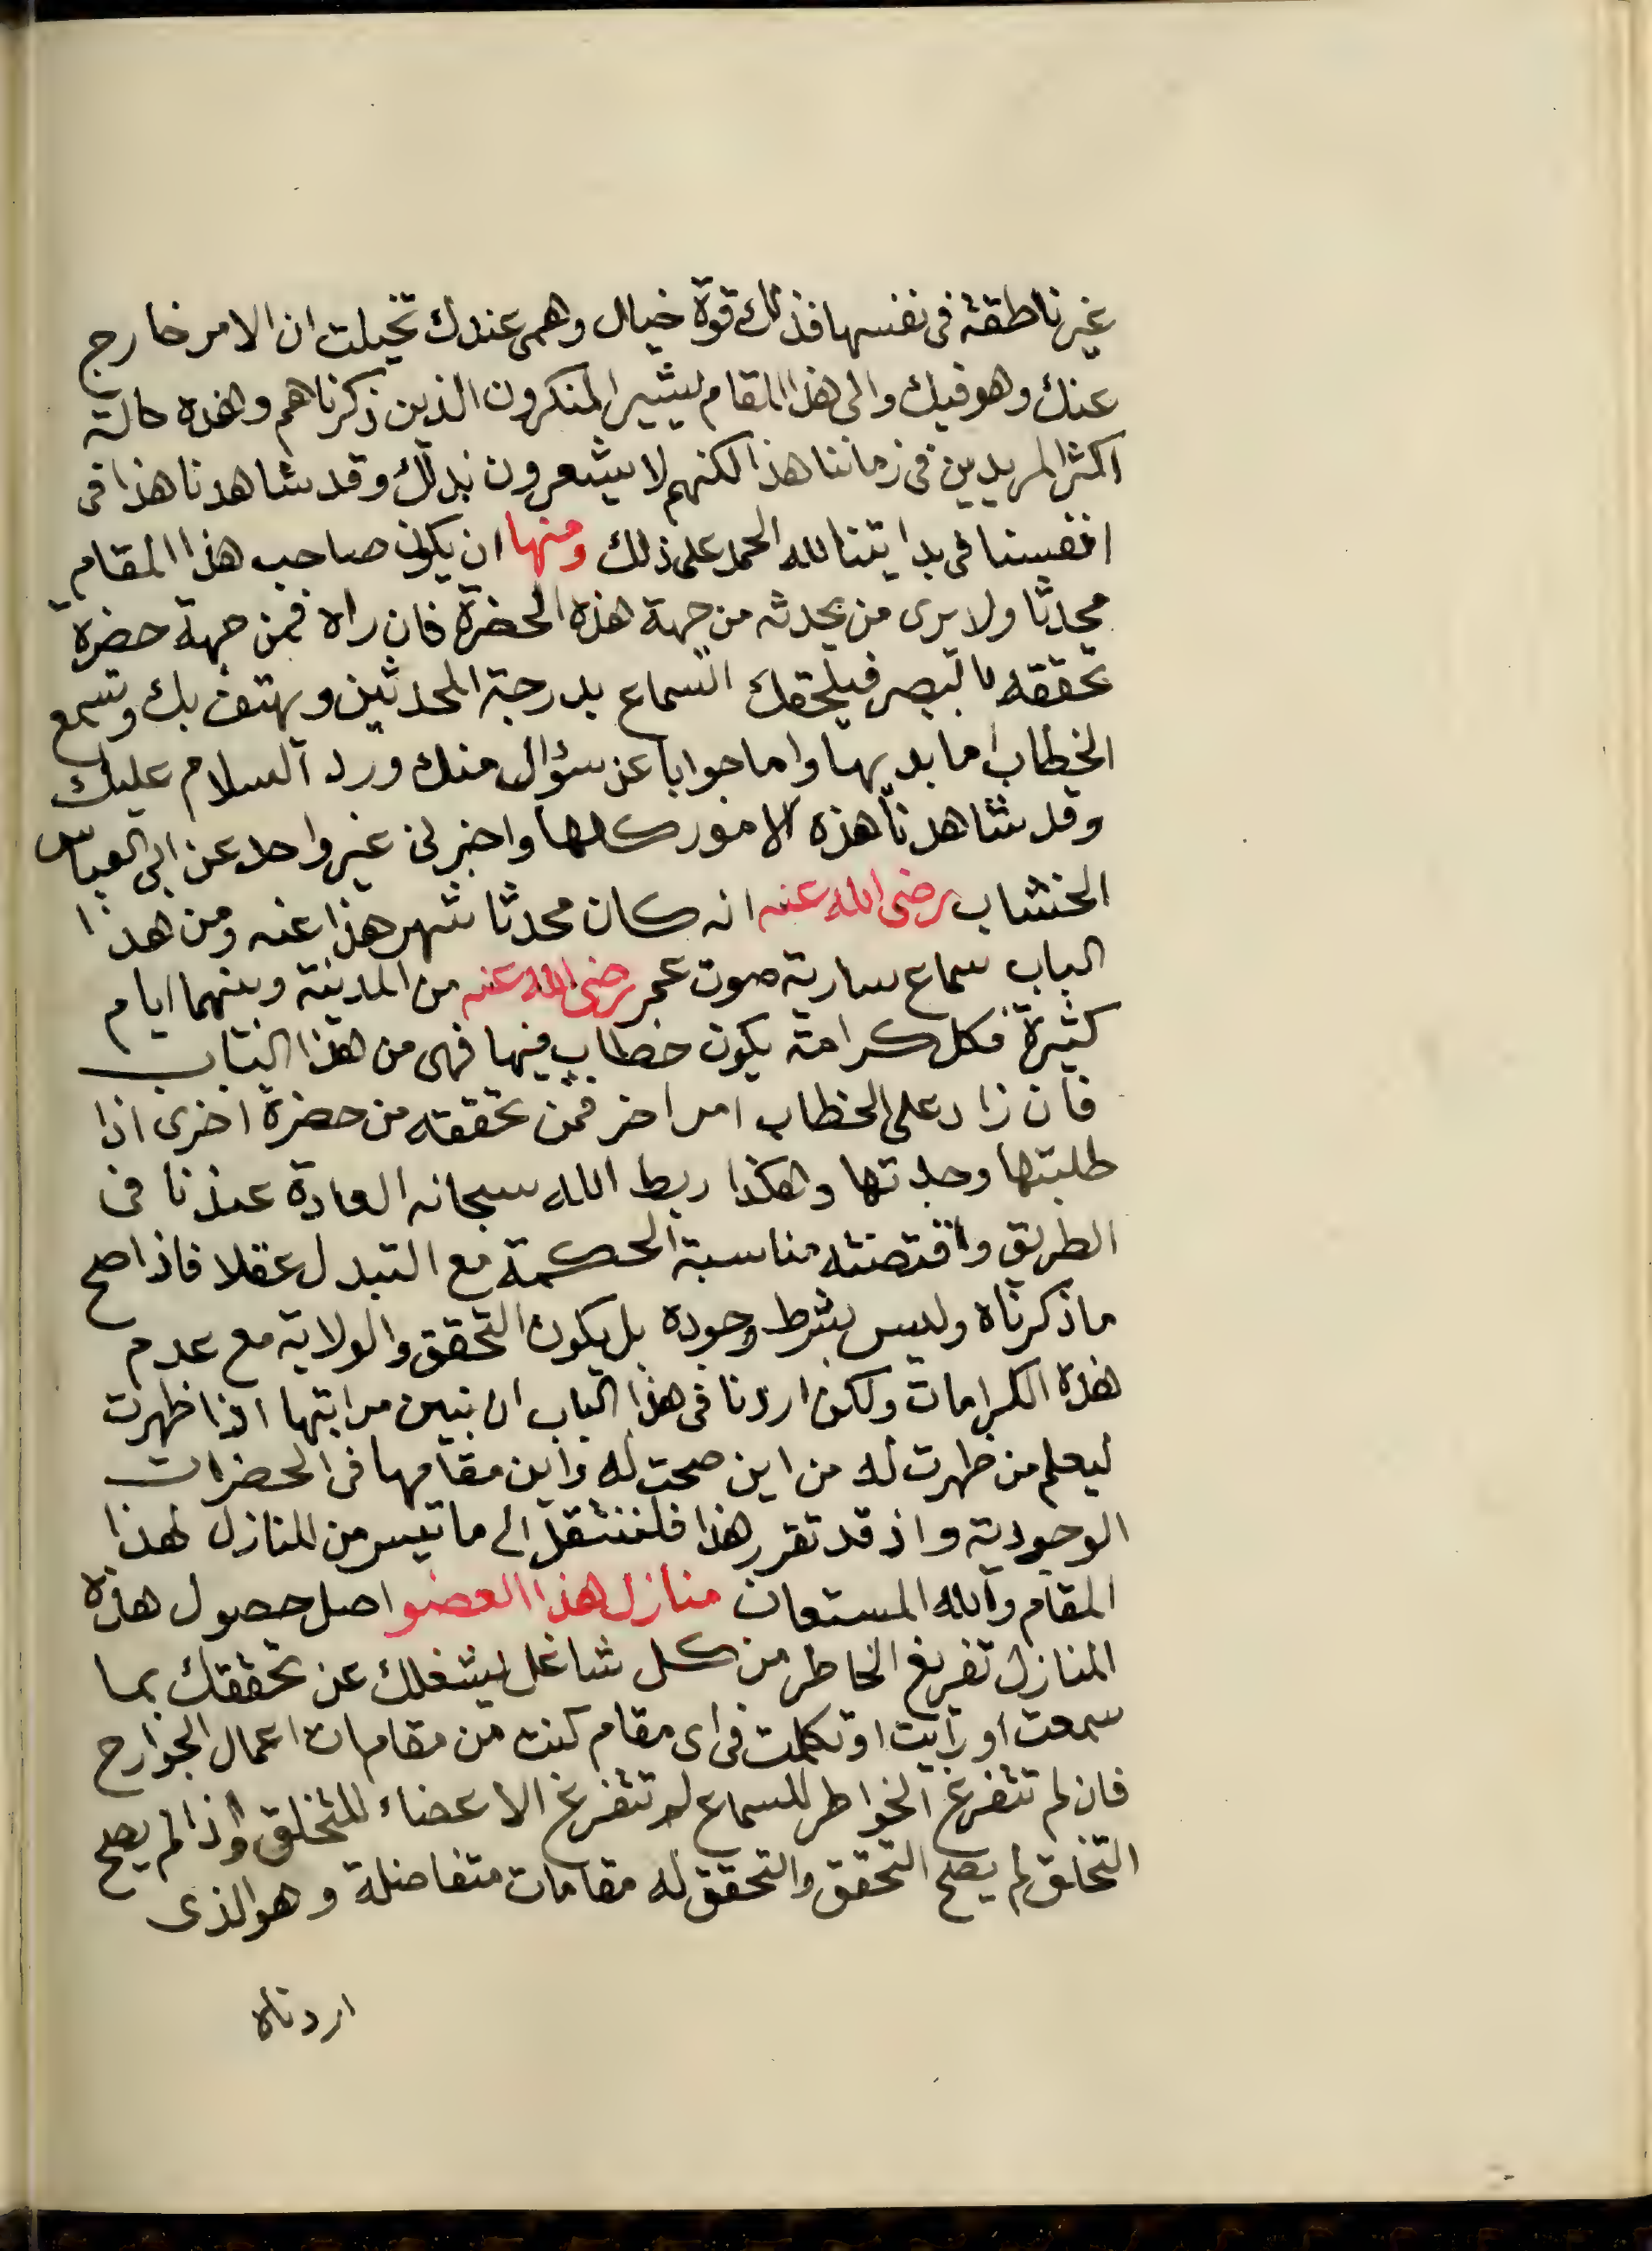 غير ناطقة فى نفسها فذلك قوة خيال وهمى عندك تخيلت ان الامر خارج
عنك وهو فيك والى هذا المقام يشير المنكرون الذين ذكرناهم وهذه حالة
اكثر المريدين فى زماننا هذا لكنهم لا يشعرون بذلك وقد شاهدنا هذا فى
انفسنا فى بدايتنا لله الحمد على ذلك ومنها ان يكون صاحب هذا المقام
محدثا ولا يرى من يحدثه من جهة هذه الحضرة فان راه فمن جهة حضرة
تحققه بالبصر فيلحقك السماع بدرجة المحدثين ويهتف بك وتسمع
الخطاب اما بديها واما جوابا عن سؤال منك ورد السلام عليك
وقد شاهدنا هذه الامور كلها واخبرنى غير واحد عن ابى العباس
الخشاب رضى الله عنه انه كان محدثا شهر هذا عنه ومن هذا
الباب سماع سارية صوت عمر رضى الله عنه من المدينة وبينهما ايام
كثيرة فكل كرامة يكون خطاب فيها فهى من هذا الباب
فان زاد على الخطاب امر اخر فمن تحققه من حضرة اخرى اذا
طلبتها وجدتها وهكذا ربط الله سبحانه العادة عندنا فى
الطريق واقتضته مناسبة الحكمة مع التبدل عقلا فاذا صح
ما ذكرناه وليس بشرط وجوده بل يكون التحقق والولاية مع عدم
هذه الكرامات ولكن اردنا فى هذا الباب ان نبين مراتبها اذا ظهرت
ليعلم من ظهرت له من اين صحت له واين مقامها فى الحضرات
الوجودية واذ قد تقرر هذا فلننتقل الى ما تيسر من المنازل لهذا
المقام والله المستعان منازل هذا العضو اصل حصول هذه
المنازل تفريغ الخاطر من كل شاغل يشغلك عن تحققك بما
سمعت او رايت او تكلمت فى اى مقام كنت من مقامات اعمال الجوارح
فان لم تتفرغ الخواطر للسماع لم تتفرغ الاعضاء للتخلق واذا لم يصح
التخلق لم يصح التحقق والتحقق له مقامات متفاضلة وهو الذى
اردناه